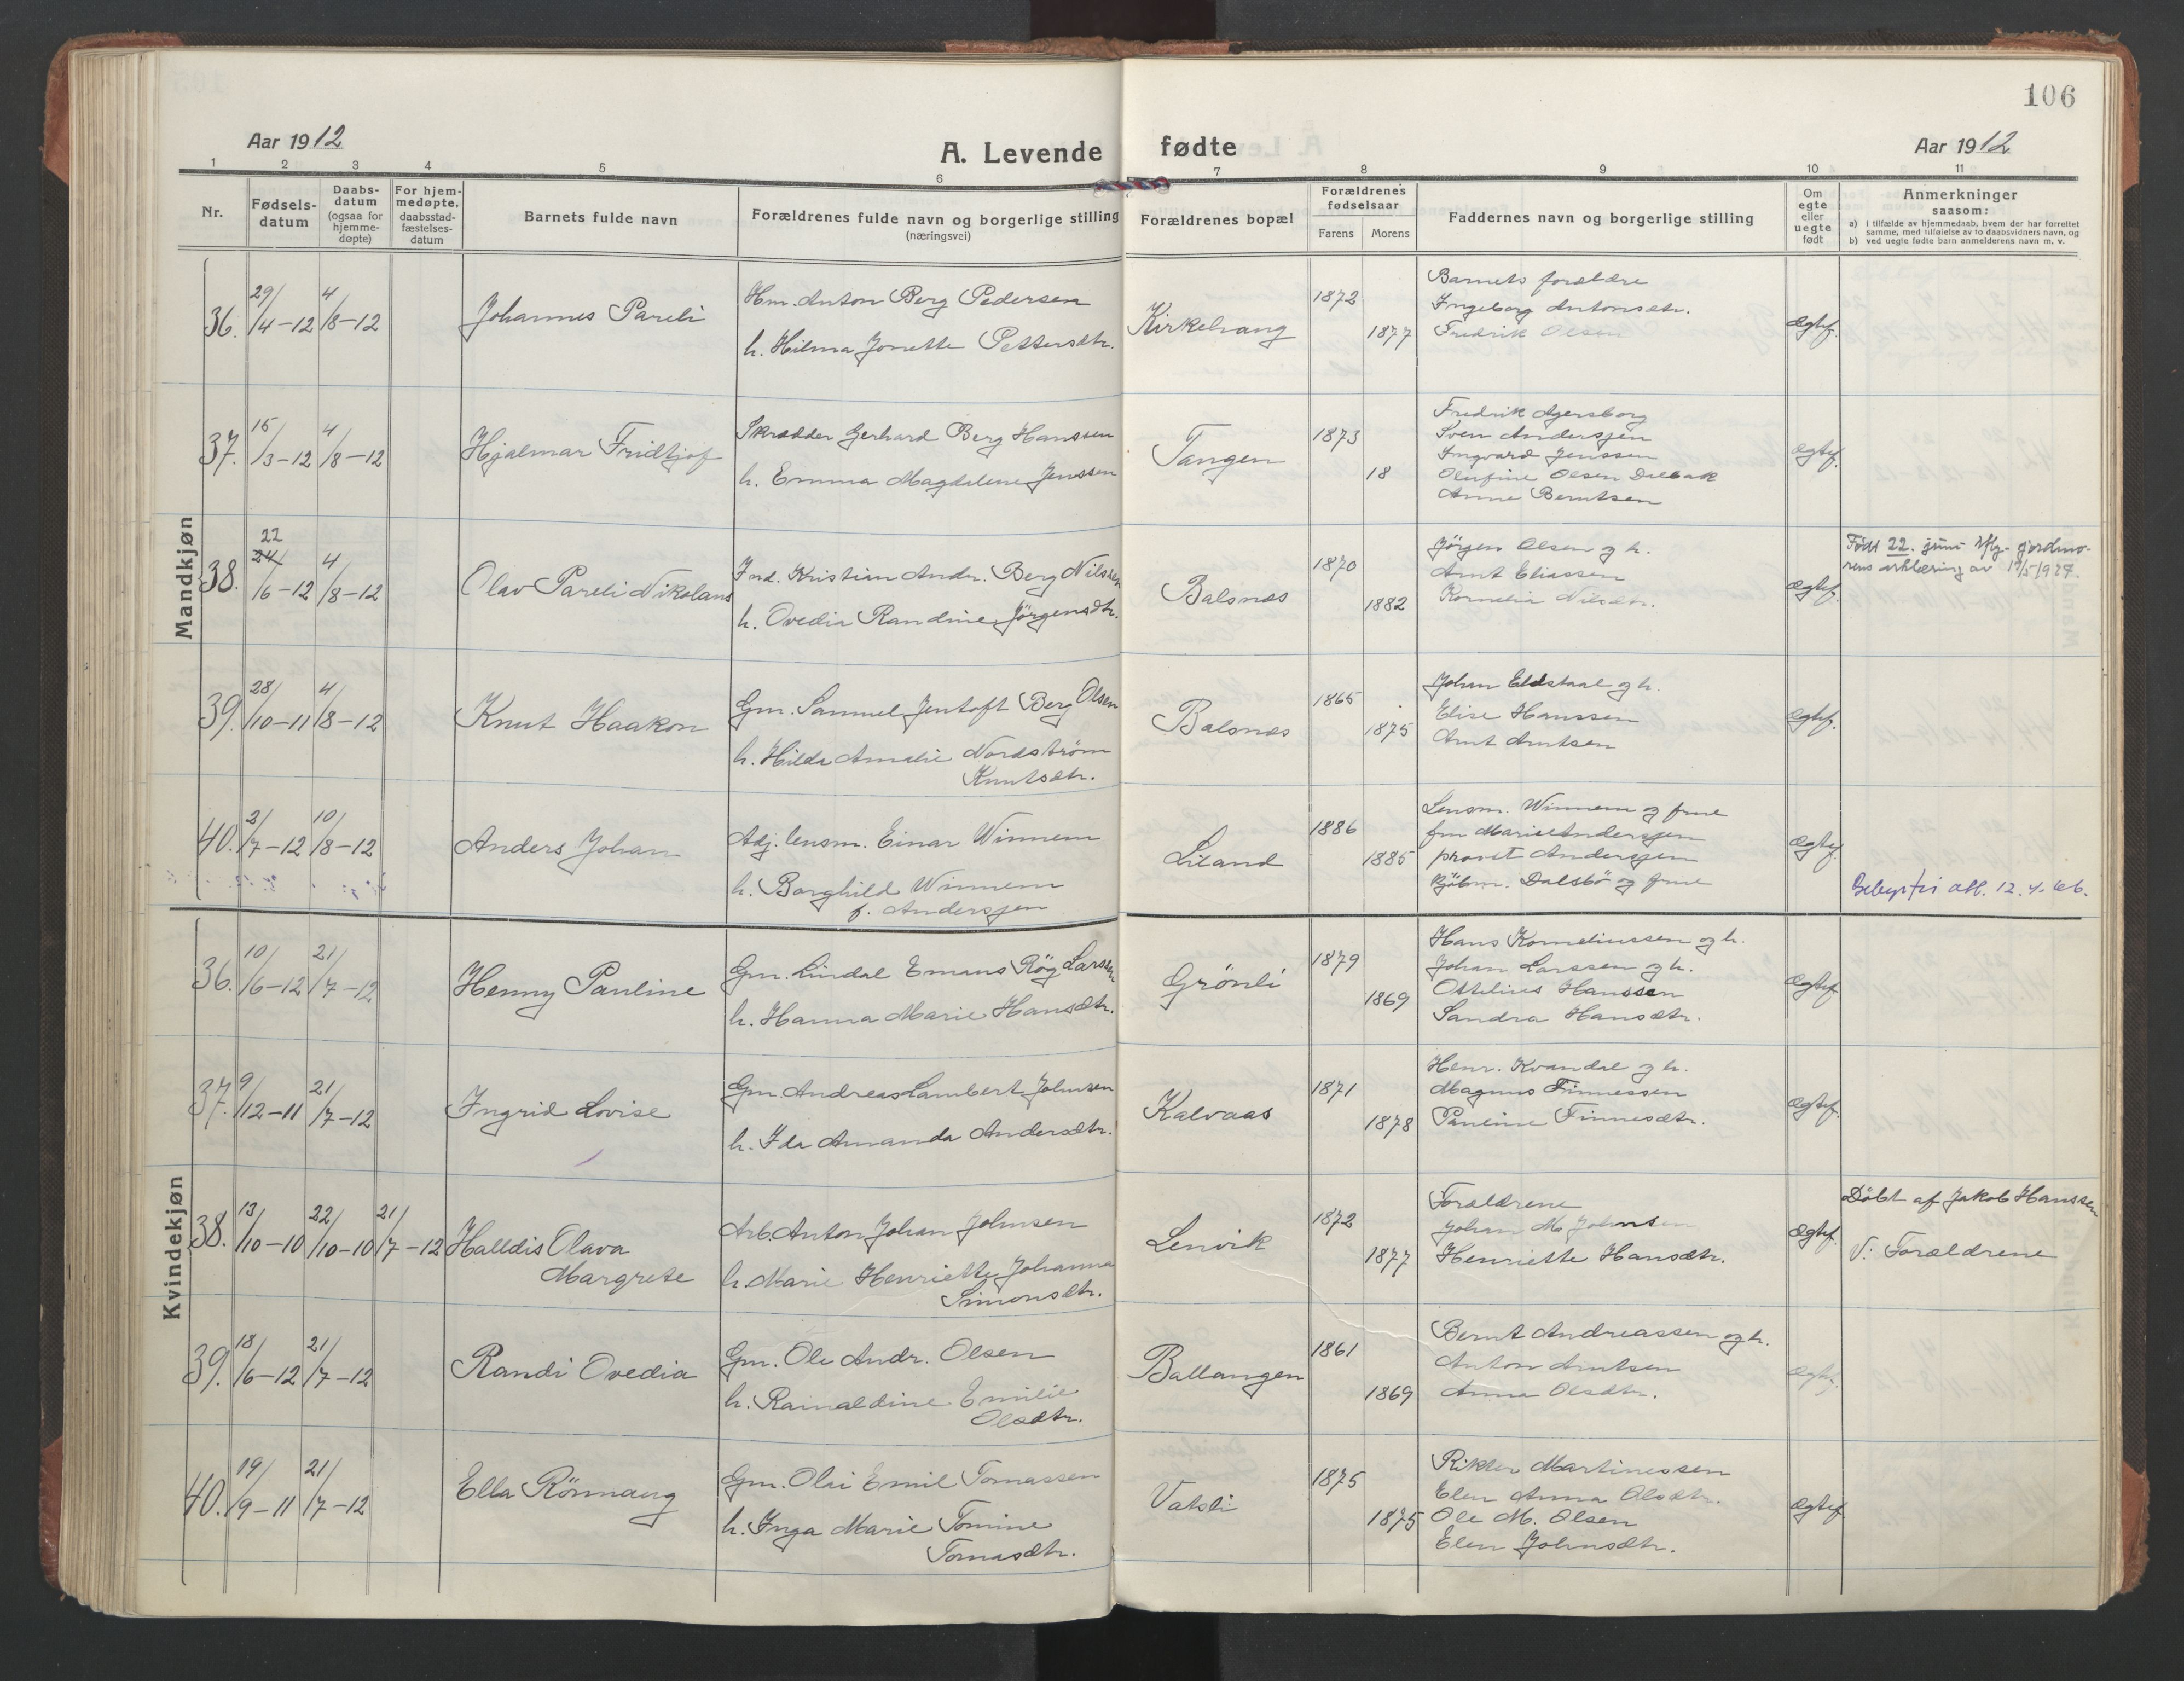 106
Aar 1912
A. Levende fødte
Aar 1912
1 2 3 4 5 6 7 8 9 10 11
Nr.
Fødsels-
datum
Daabs-
datum
(ogsaa for
hjemme-
døpte)
For hjem-
medøpte,
daabsstad-
fæstelses-
datum
Barnets fulde navn
Forældrenes fulde navn og borgerlige stilling
(næringsvei)
Forældrenes bopæl
Forældrenes
fødselsaar
Farens Morens
Faddernes navn og borgerlige stilling
Om
egte
eller
uegte
født
Anmerkninger
saasom:
a) i tilfælde av hjemmedaab, hvem der har forrettet
samme, med tilføielse av to daabsvidners navn, og
b) ved uegte fødte barn anmelderens navn m. v.
Mandkjøn
36. 29/4-12 4/8-12
Johannes Pareli
Hm. Anton Berg Pedersen
h. Hilma Jonette Pettersdtr.
Kirkehaug
1872
1877
Barnets forældre
Ingeborg Antonsdtr.
Fredrik Olsen
ægtef.
37. 15/3-12 4/8-12
Hjalmar Fridtjof
Skrædder Gerhard Berg Hanssen
h. Emma Magdalene Jenssen
Tangen
1873
18
Fredrik Agersborg
Sven Andersjen
Ingvard Jenssen
Olufine Olsen Delbak
Anne Berntsen
ægtef.
38. 22 24/6-12 4/8-12
Olav Pareli Nikolaus
Ind. Kristian Andr. Berg Nilssen
h. Ovedia Randine Jörgensdtr.
Balsnes
1870
1882
Jörgen Olsen og h.
Arnt Eliassen
Kornelia Nilsdtr.
ægtef.
Født 22. juni iflg. jordmo-
rens erklæring av 19/5 1927.
39. 28/10-11 4/8-12
Knut Haakon
Gm. Samuel Jentoft Berg Olsen
h. Hilda Amalie Nordstrøm
Knutsdtr.
Balsnes
1865
1875
Johan Eldstaal og h.
Elise Hanssen
Arnt Arntsen
ægtef.
40. 2/7-12 10/8-12
Anders Johan
Adj. lensm. Einar Winnem
h. Borghild Winnem
f. Andersjen
Liland
1886
1885
Lensm. Winnem og frue
fru Marie Andersjen
provst Andersjen
kjöbm. Dalsbö og frue
ægtef.
att. 12.4.66.
Kvindekjøn
36. 10/6-12 21/7-12
Henny Pauline
Gm. Lindal Emaus Røg Larssen
h. Hanna Marie Hansdtr.
Grönli
1879
1869
Hans Korneliussen og h.
Johan Larssen og h.
Ottelius Hanssen
Sandra Hansdtr.
ægtef.
37. 9/12-11 21/7-12
Ingrid Lovise
Gm. Andreas Lambert Johnsen
h. Ida Amanda Andersdtr.
Kalvaas
1871
1878
Henr. Kvandal og h.
Magnus Finnessen
Pauline Finnesdtr.
ægtef.
38. 13/10-10 22/10-10 21/7-12
Halldis Olava
Margrete
Arb. Anton Johan Johnsen
h. Marie Henriette Johanna
Simonsdtr.
Lenvik
1872
1877
Forældrene
Johan M. Johnsen
Henriette Hansdtr.
ægtef.
Döbt af Jakob Hanssen
V: Forældrene
39. 18/6-12 21/7-12
Randi Ovedia
Gm. Ole Andr. Olsen
h. Rainaldine Emilie
Olsdtr.
Ballangen
1861
1869
Bernt Andreassen og h.
Anton Arntsen
Anna Olsdtr.
ægtef.
40. 19/9-11 21/7-12
Ella Rönnaug
Gm. Olai Emil Tomassen
h. Inga Marie Tomine
Tomasdtr.
Vatsli
1875
1875
Rikter Martinessen
Elen Anna Olsdtr.
Ole M. Olsen
Elen Johnsdtr.
ægtef.